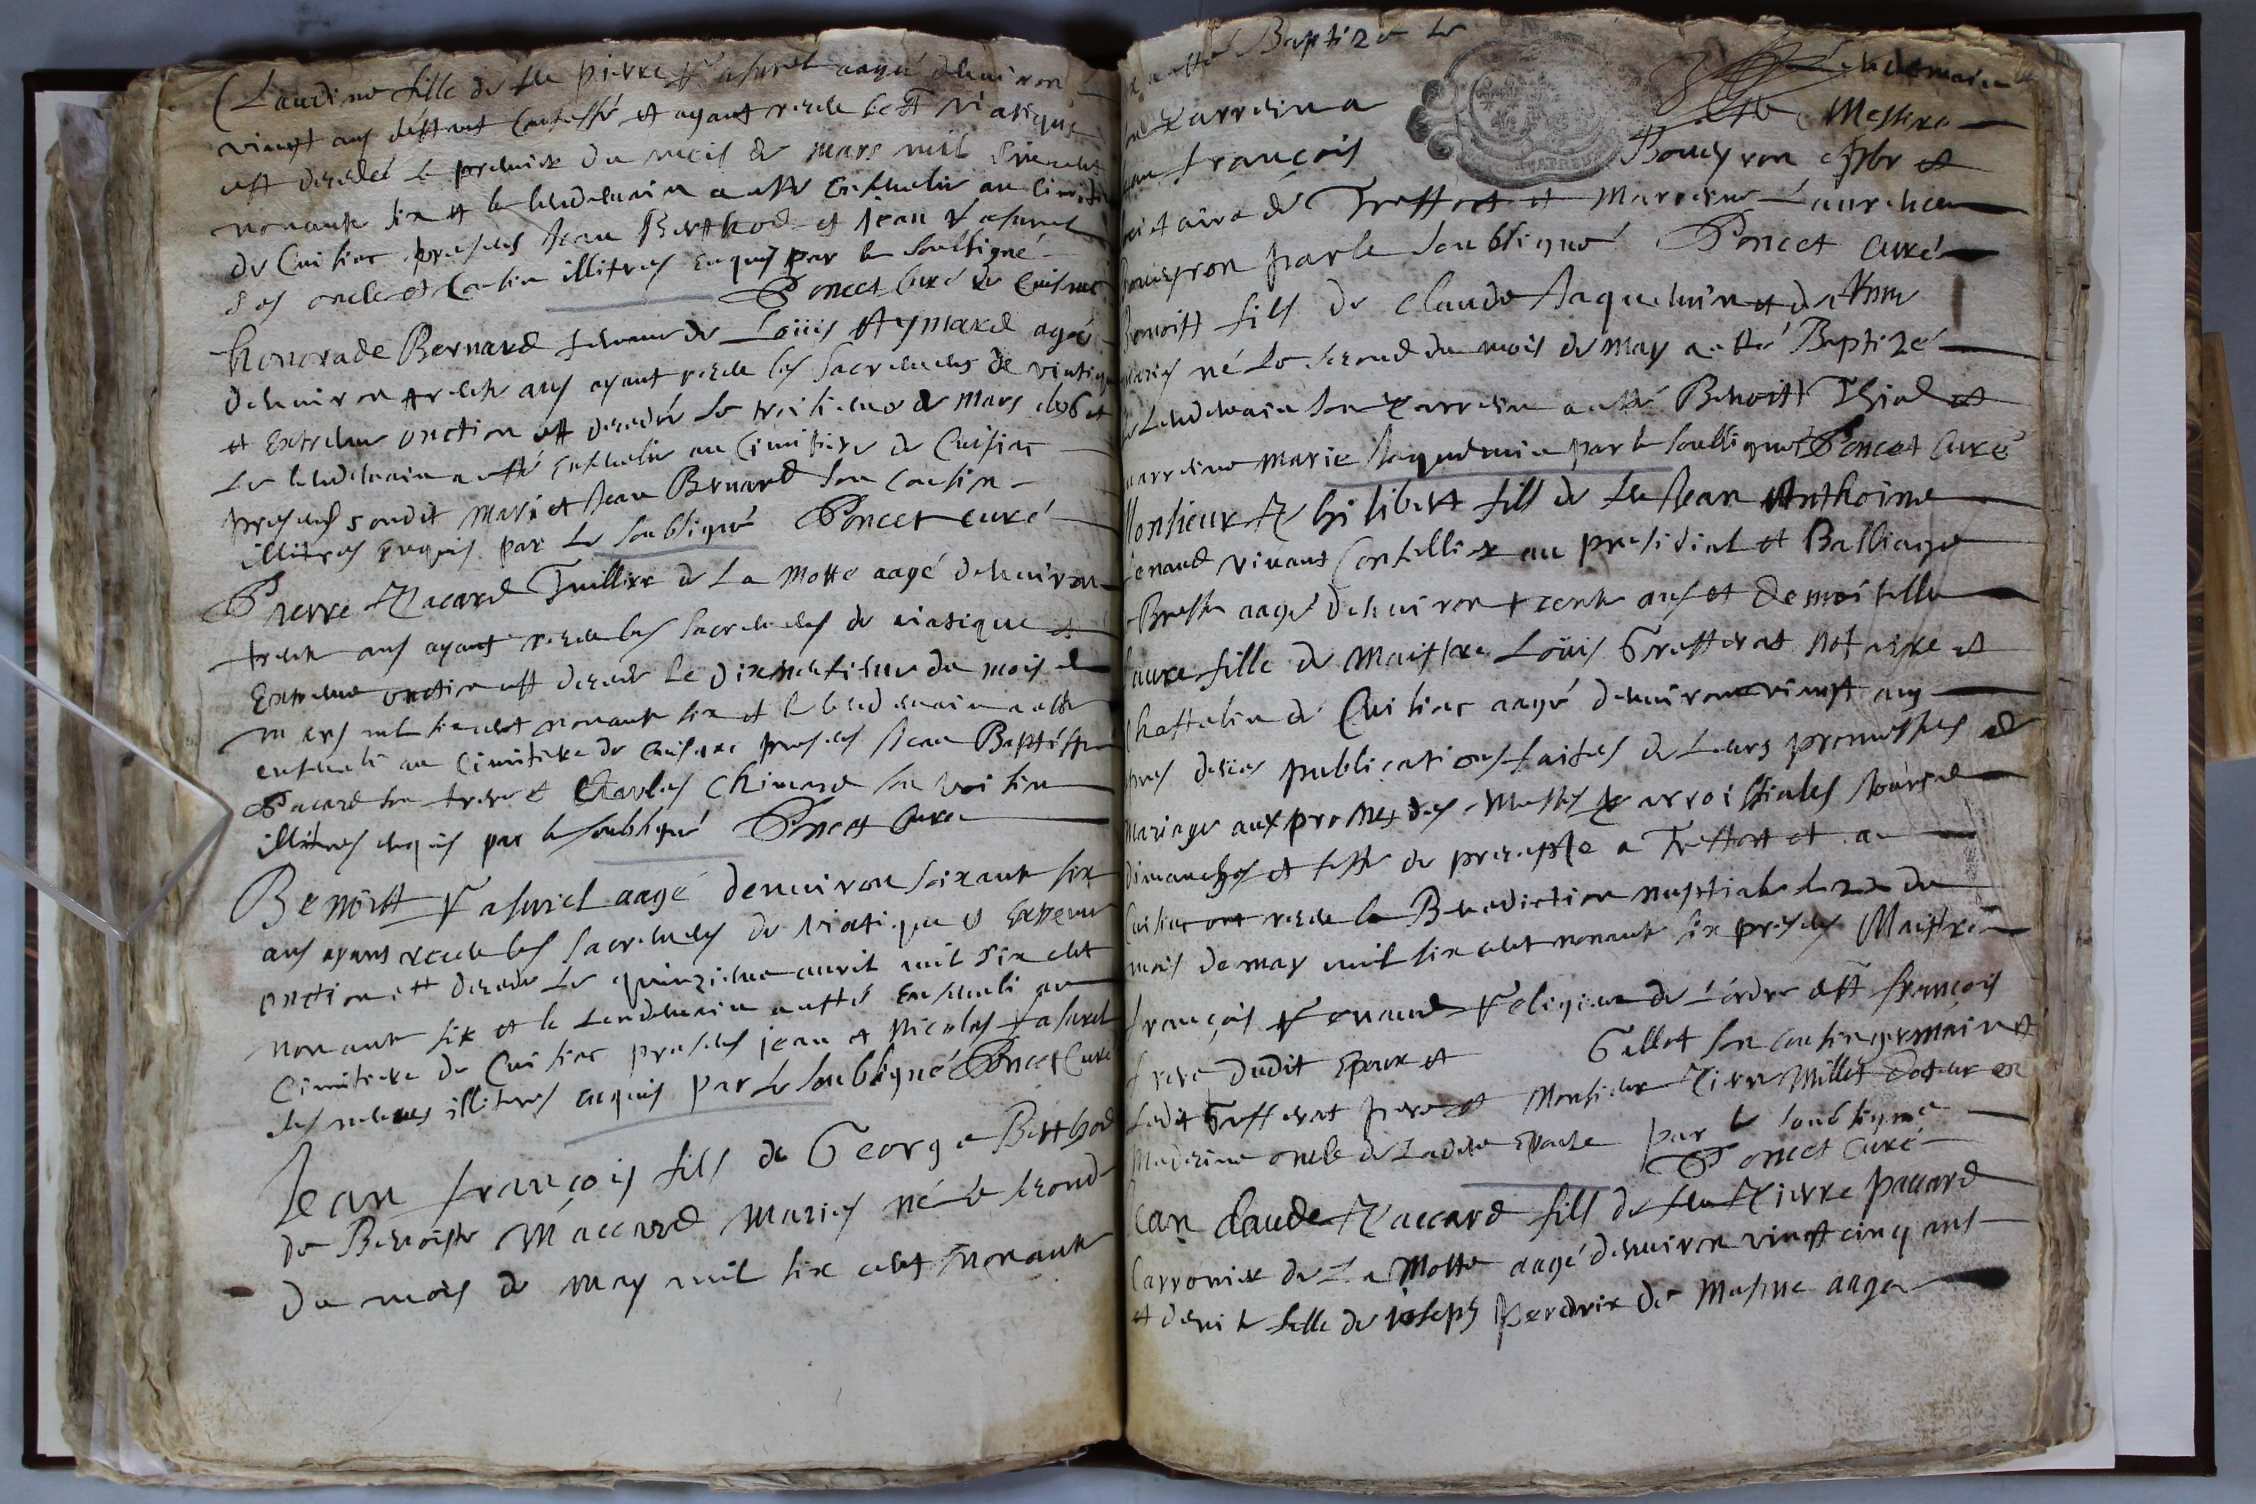 Claudine fille de feu pierre aagé denuiron
vingt ans estant Confessé et ayant receu le st Viatique
est decedée le premier du mois de mars mil six cent
nonante six et le lendemain a esté enseuelie au Cimitiere
de Cuisiac presens Jean Berthod et jean
ses oncle et Cousin illitres enquis par le soubsigné
Poncet Curé de Cuisiac
honorade Bernard femme de Loüis Aymard agée
denuiron trente ans ayant receu les sacremens de viatique
et Extreme onction est decedée le troisieme de Mars 1696 et
Le lendemain a esté enseuelie au Cimitiere de Cuisiac
presens sondit Mari et Jean Bernard son Cousin
illitres enquis par Le soubsigné Poncet curé
Pierre Pacard Tuillier de La Motte aagé denuiron
trente ans ayant receu les sacremens de viatique et
Extreme onction est decedé le dixneufieme du mois de
mars mil six cent nonante six et le lendemain a esté
enseueli au Cimitiere de Cuisiac presens Jean Baptiste
Pacard son frere et Charles Chinard son voisin
illitres enquis par le soubsigné Poncet Curé
Benoist aagé denuiron soixante six
ans ayant receu les sacremens de Viatique et Extreme
onction est decedé Le quinzieme auril mil six cent
nonante six et le Lendemain a esté Enseueli au
Cimitiere de Cuisiac presens jean et Nicolas
ses illitres enquis par Le soubsigné Poncet Curé
Jean françois fils de George Berthod
de Benoiste Maccard Mariés né le second
du mois de may mil six cent nonante
a esté Baptizé Le lendemain
parrein a Messire
jean françois Boueyron et
de Treffort et Marreine Laurence
Boueyron par le soubsigné Poncet Curé
Benoist fils de Claude Jaquemin et de
Mariés né Le second du mois de May a esté Baptizé
Le Lendemain son parrein a esté Benoist et
marreine Marie Jaquemin par le soubsigné Poncet Curé
Monsieur Philibert fils de feu Jean Anthoine
Renaud viuant Conseillier au presidial et Balliage
Bresse aagé denuiron trente ans et Demoiselle
Laure fille de Maistre Loüis Grefferat Notaire et
Chastelin de Cuisiac aagé denuiron vingt ans
apres publications faites de Leurs promesses de
Mariage aux prosnes des Messes parroissiales
dimanches et feste de precepte a Treffort et a
Cuisiac ont receu la Benediction nuptiale le 22e du
mois de may mil six cent nonante six presens Maistre
françois Renaud Religieux de L'ordre st françois
frere dudit Epoux et Gallet son Cousin germain et
Ledit Grefferat pere et Monsieur Pierre Millet docteur en
Medecine oncle de Ladite Epouse par le soubsigné
Poncet Curé
Jean Claude Paccard fils de feu Pierre paccard
de La Motte aagé denuiron vingt cinq ans
et fille de joseph perdrix de aagée